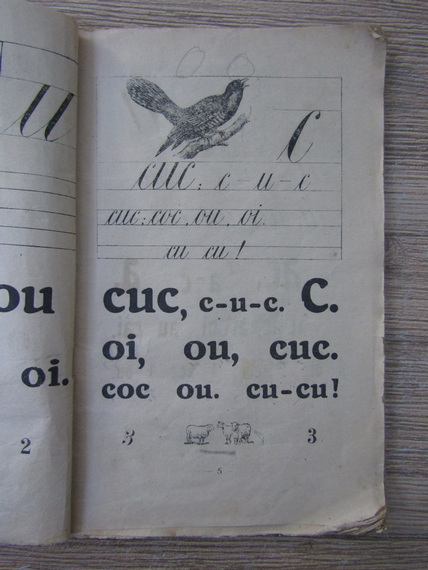 u
ou
oi.
2
C
cuc; c-u-c
cuc: coc ou oi
cu cu!
cuc, c-u-c. C.
oi, ou, cuc.
coc ou. cu-cu!
3 3